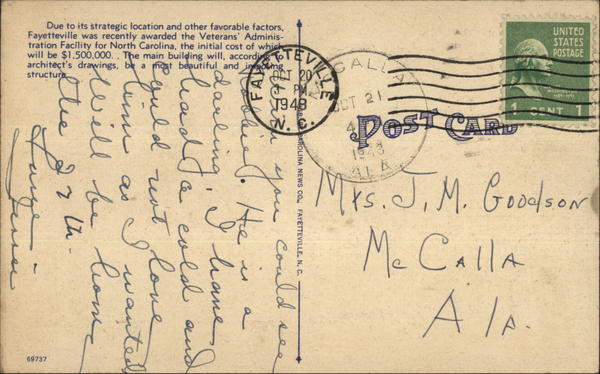 Due to its strategic location and other favorable factors,
Fayetteville was recently awarded the Veterans' Adminis-
tration Facility for North Carolina, the initial cost of which
will be $1,500,000. The main building will, according to
architect's drawings, be a most beautiful and imposing
structure.
FAYETTEVILLE
OCT 20
PM
1948
N. C.
CALLA
OCT 21
1948
ALA
UNITED
STATES
POSTAGE
1 CENT 1
POST CARD
you could see
He is a
darling. I have
had a cold and
could not love
him as I wanted
Will be home
the 27th.
Mrs. J. M. Goodson
McCalla
Ala.
CAROLINA NEWS CO., FAYETTEVILLE, N. C.
69737